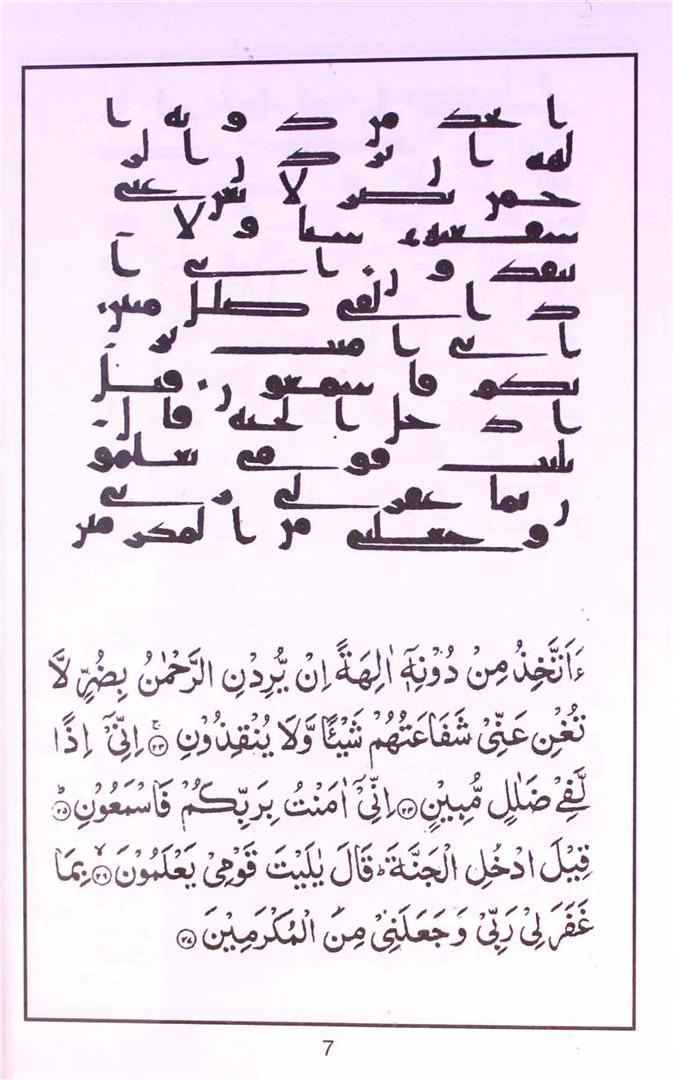 ا تخذ من د و نه ا
لهه ا ن ير د ن ا لر
حمن بضر لا تغن عنى
شفعتهم شيا و لا
ينقذ و ن ا نى ا
ذ ا لفى ضلل مبين
ا نى ا منت بر
بكم فا سمعو ن قيل
ا د خل ا لجنه قا ل
يليت قومى يعلمو
ن بما غفر لى ر بى
و جعلنى من ا لمكر مين
ءَاَتَّخِذُ مِنْ دُوْنِهٖٓ اٰلِهَةً اِنْ يُّرِدْنِ الرَّحْمٰنُ بِضُرٍّ لَّا
تُغْنِ عَنِّىْ شَفَاعَتُهُمْ شَيْـًٔا وَّلَا يُنْقِذُوْنِ ۚ‏﴿۲۳﴾ اِنِّىْٓ اِذًا
لَّفِىْ ضَلٰلٍ مُّبِيْنٍ ﴿۲۴﴾ اِنِّىْٓ اٰمَنْتُ بِرَبِّكُمْ فَاسْمَعُوْنِ ؕ﴿۲۵﴾
قِيْلَ ادْخُلِ الْجَنَّةَ ؕ قَالَ يٰلَيْتَ قَوْمِىْ يَعْلَمُوْنَ ۙ﴿۲۶﴾ بِمَا
غَفَرَ لِىْ رَبِّىْ وَجَعَلَنِىْ مِنَ الْمُكْرَمِيْنَ ﴿۲۷﴾
7